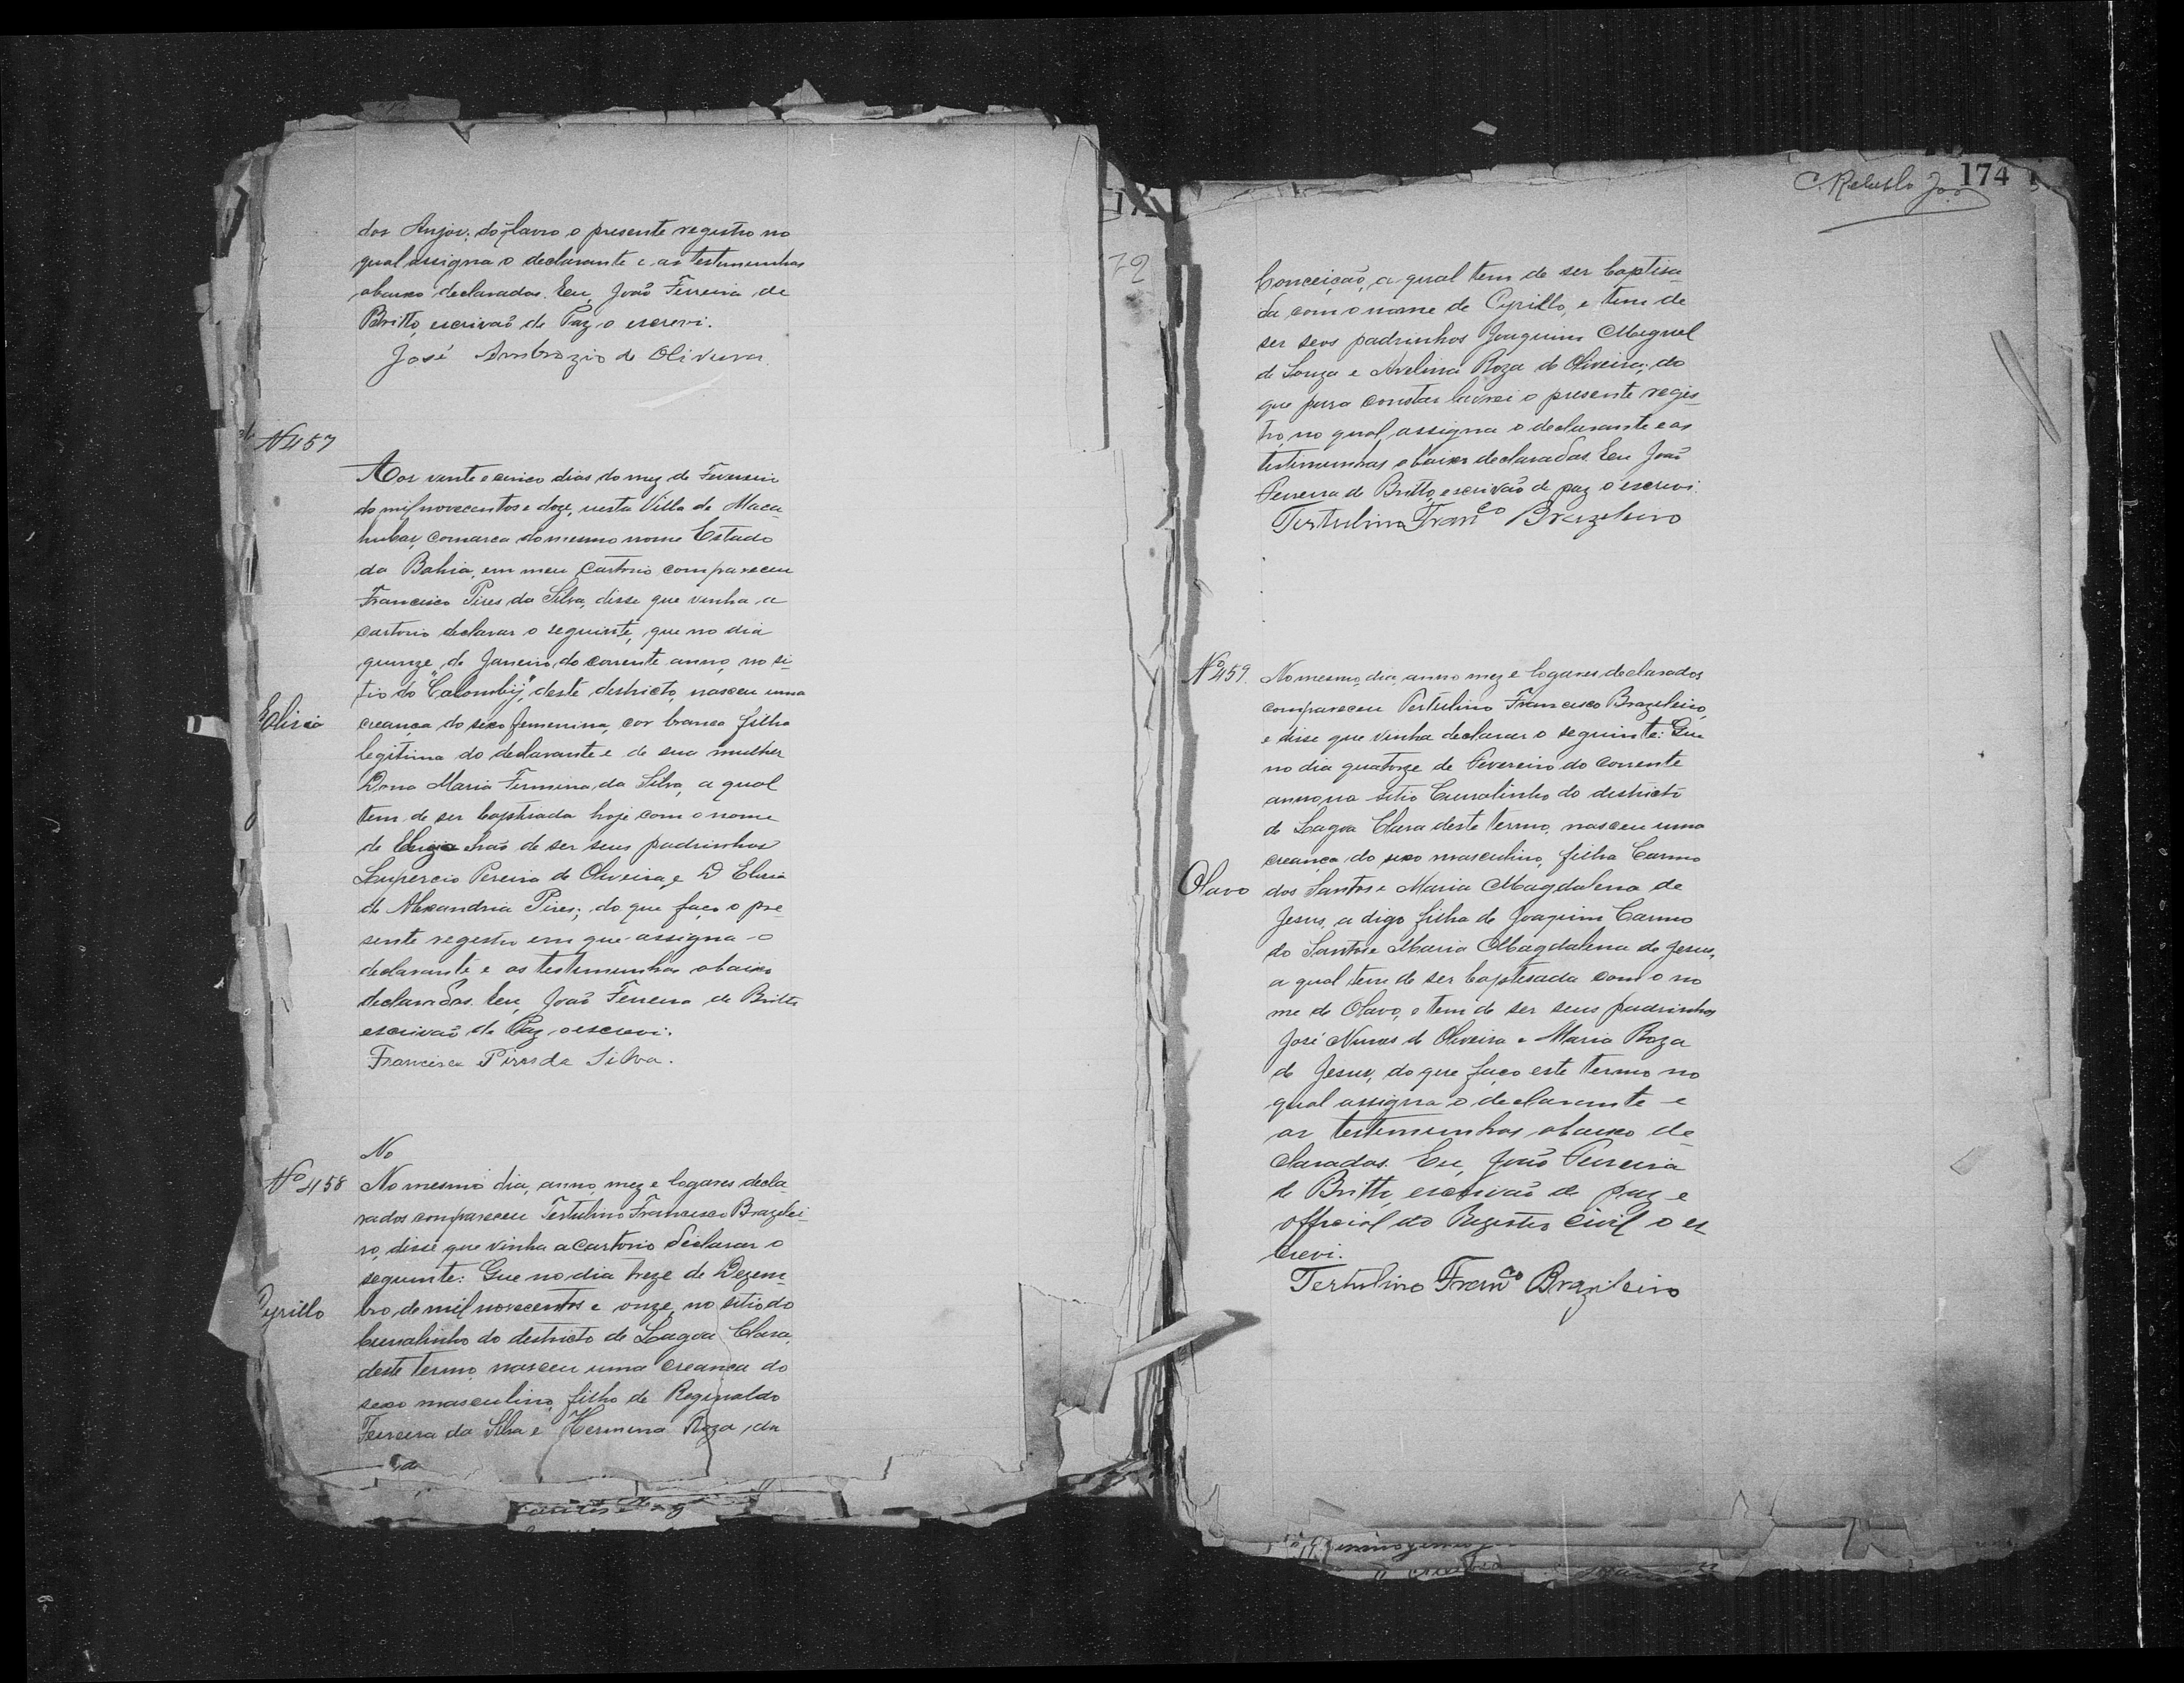 dos Anjos; do q̃ lavro o presente registro no
qual assigna o declarante e as testemunhas
abaixo declaradas. Eu, João Ferreira de
Britto, escrivaõ de Paz o escrevi.
José Ambrozio de Oliveira
Nº 457
Aos vinte e cinco dias do mez de Fevereiro
de mil novecentos e doze, nesta Villa de Maca-
hubas, comarca do mesmo nome Estado
da Bahia, em meu Cartorio compareceu
Francisco Pires da Silva, disse que vinha a
cartorio declarar o seguinte, que no dia
quinze de Janeiro do corrente anno, no si-
tio do "Calomby", deste destricto, nasceu uma
creança do sexo femenino, cor branca filha
legitima do declarante e de sua mulher
Dona Maria Firmina da Silva, a qual
tem de ser baptisada hoje com o nome
de haõ de ser seus padrinhos
Lupercio Pereira de Oliveira, e D Elisia
de Alexandria Pires; do que faço o pre-
sente registro em que assigna o
declarante e as testemunhas abaixo
declaradas. Eu, João Ferreira de Britto
escrivaõ de Paz, o escrevi.
Francisco Pires da Silva.
Elisia
No
Nº 458 No mesmo dia, anno, mez e logares decla-
rados compareceu Tertulino Francisco Brazilei-
ro, disse que vinha a Cartorio declarar o
seguinte: Que no dia treze de Dezem-
bro de mil novecentos e onze, no sitio do
Curralinho do destricto de Lagoa Clara,
deste termo nasceu uma creança do
sexo masculino, filho de Reginaldo
Ferreira da Silva e Hermina Roza da
Cyrillo
174
Conceição, a qual tem de ser baptisa-
da com o nome de Cyrillo, e tem de
ser seos padrinhos Joaquim Miguel
de Souza e Avelina Roza de Oliveira; do
que para constar lavrei o presente regis-
tro, no qual assigna o declarante e as
testemunhas abaixo declaradas. Eu João
Ferreira de Britto, escrivão de paz o escrevi.
Tertulino Franco Brazileiro
Nº 459. No mesmo dia, anno mez e logares declarados
compareceu Tertulino Francisco Brazileiro,
e disse que vinha declarar o seguinte: Que
no dia quatorze de Fevereiro do corrente
anno, no sitio Curralinho do destricto
de Lagoa Clara deste termo, nasceu uma
creança do sexo masculino, filha Carmo
Olavo dos Santos e Maria Magdalena de
Jesus, a digo filha de Joaquim Carmo
do Santos e Maria Magdalena de Jesus,
a qual tem de ser baptisada com o no
me de Olavo, e tem de ser seus padrinhos
José Nunes de Oliveira e Maria Roza
de Jesus, do que faço este termo no
qual assigna o declarante e
as testemunhas abaixo de-
claradas. Eu, João Ferreira
de Britto, escrivão de paz e
official do Registro Civil o es
crevi.
Tertulino Franco Brazileiro